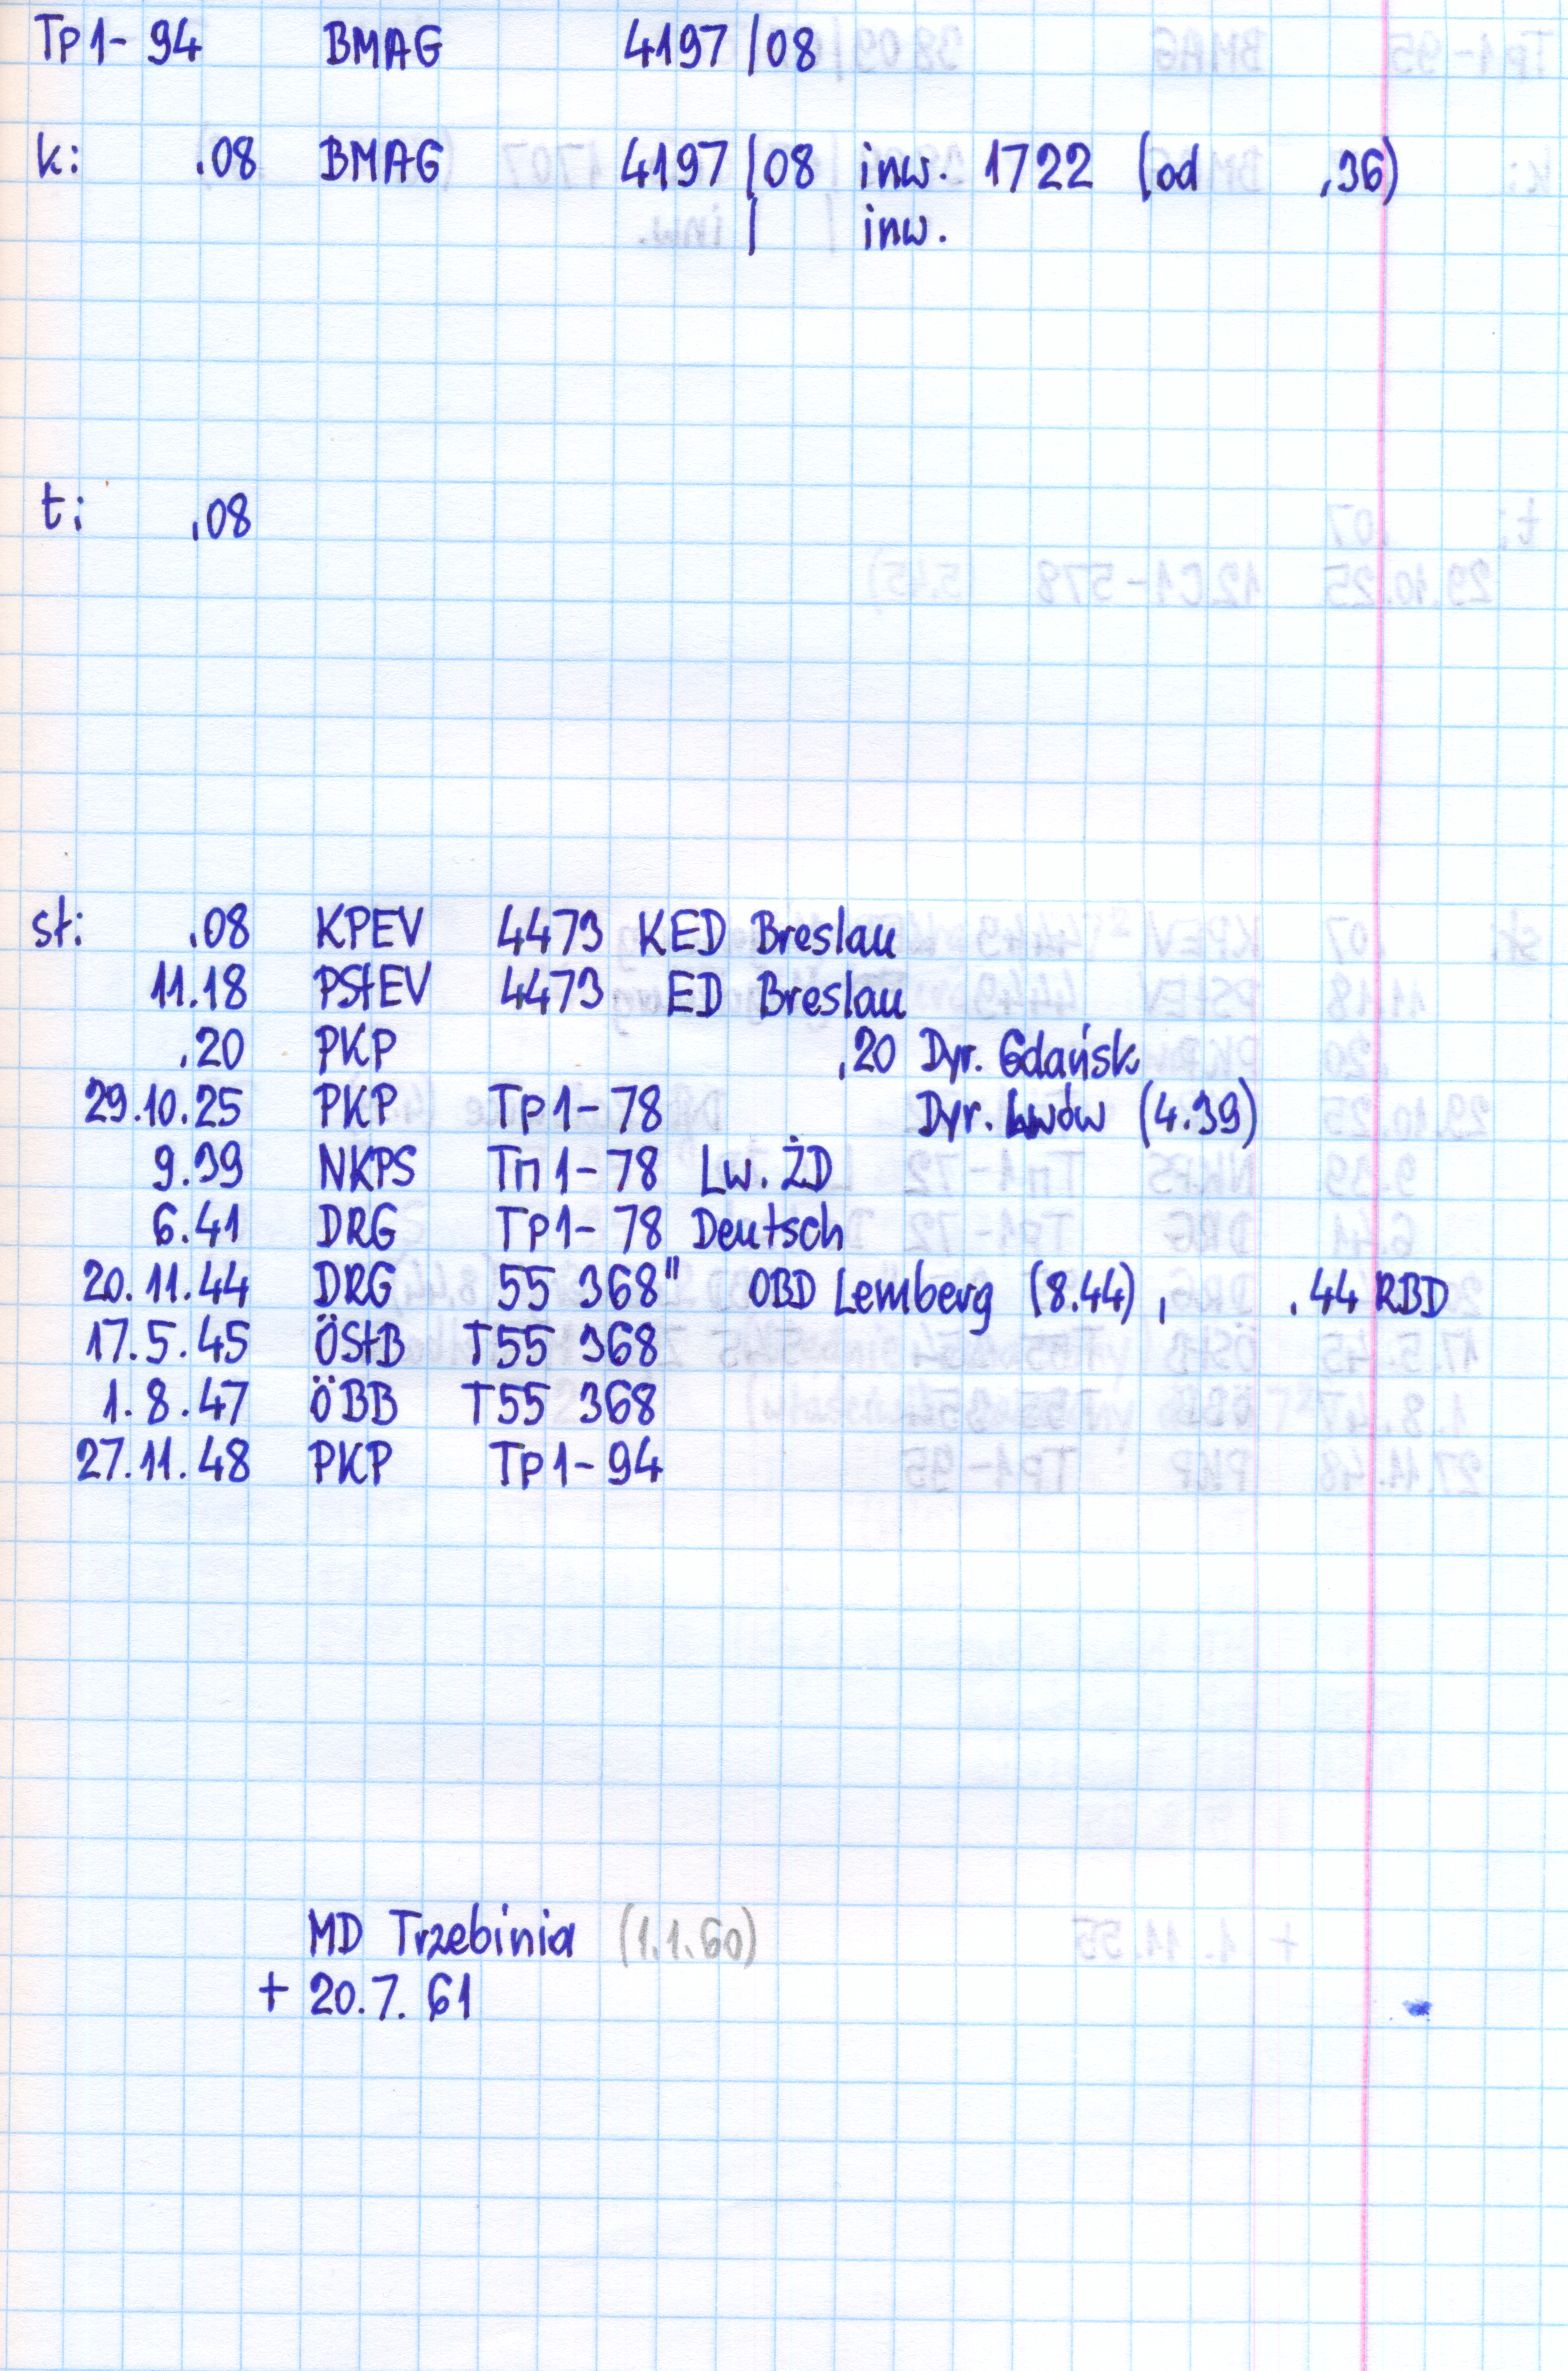 Tp1-94 BMAG 4197/08
k: .08 BMAG 4197/08 inw. 1722 (od .36)
/ inw.
t: .08
st: .08 KPEV 4473 KED Breslau
11.18 PStEV 4473 ED Breslau
.20 PKP .20 Dyr. Gdańsk
29.10.25 PKP Tp1-78 Dyr. Lwów (4.39)
9.39 NKPS Тп1-78 Lw. ŻD
6.41 DRG Tp1-78 Deutsch
20.11.44 DRG 55 368" OBD Lemberg (8.44), .44 RBD
17.5.45 ÖStB T55 368
1.8.47 ÖBB T55 368
27.11.48 PKP Tp1-94
MD Trzebinia (1.1.60)
+ 20.7.61